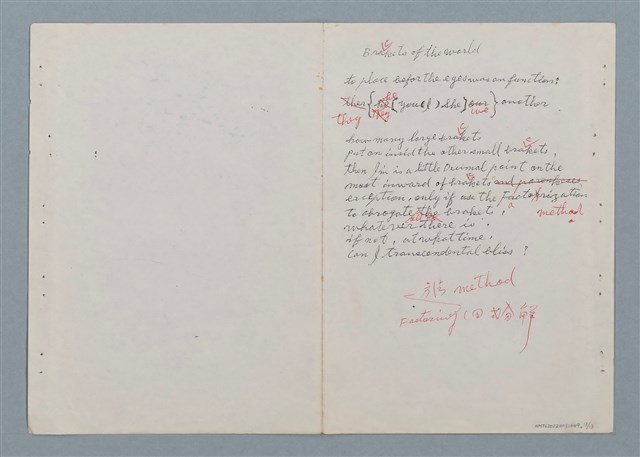 Brakets of the world
c
to place befor the eyes was an function:
they { he [ you ( I ) she ] our } another.
they we
how many large brakets
c
put an insid the other small brakets,
c
then I'm is a little Decimal point on the
most inward of brakets and parentheses
c
exception, only if use the Factorization
method
to abrogate the brakets,
whatever there is.
if not, at what time.
Can I transcendental bliss?
method
Factoring (因式分解